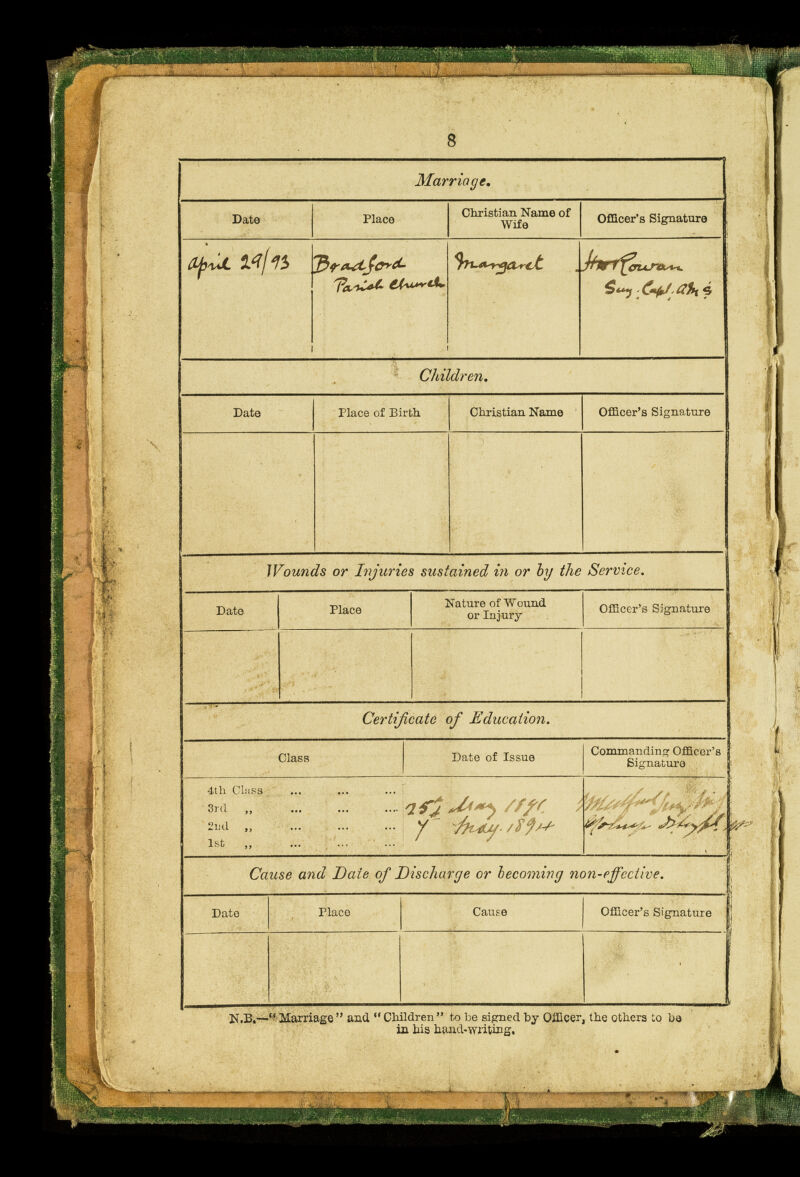 8
Marriage.
Date Place Christian Name of Wife Officer's Signature
April 29/93 Bradford Margaret
Parish Church Surg. Capt. A
Children.
Date Place of Birth Christian Name Officer's Signature
Wounds or Injuries sustained in or by the Service.
Date Place Nature of Wound or Injury Officer's Signature
Certificate of Education.
Class Date of Issue Commanding Officer's Signature
4th Class ... ... ...
3rd ,, ... ... ... 25th May 189
2nd ,, ... ... ... 7 May. 1894
1st ,, ... ... ...
Cause and Date of Discharge or becoming non-effective.
Date Place Cause Officer's Signature
N.B.—"Marriage" and "Children" to be signed by Officer, the others to be
in his hand-writing.